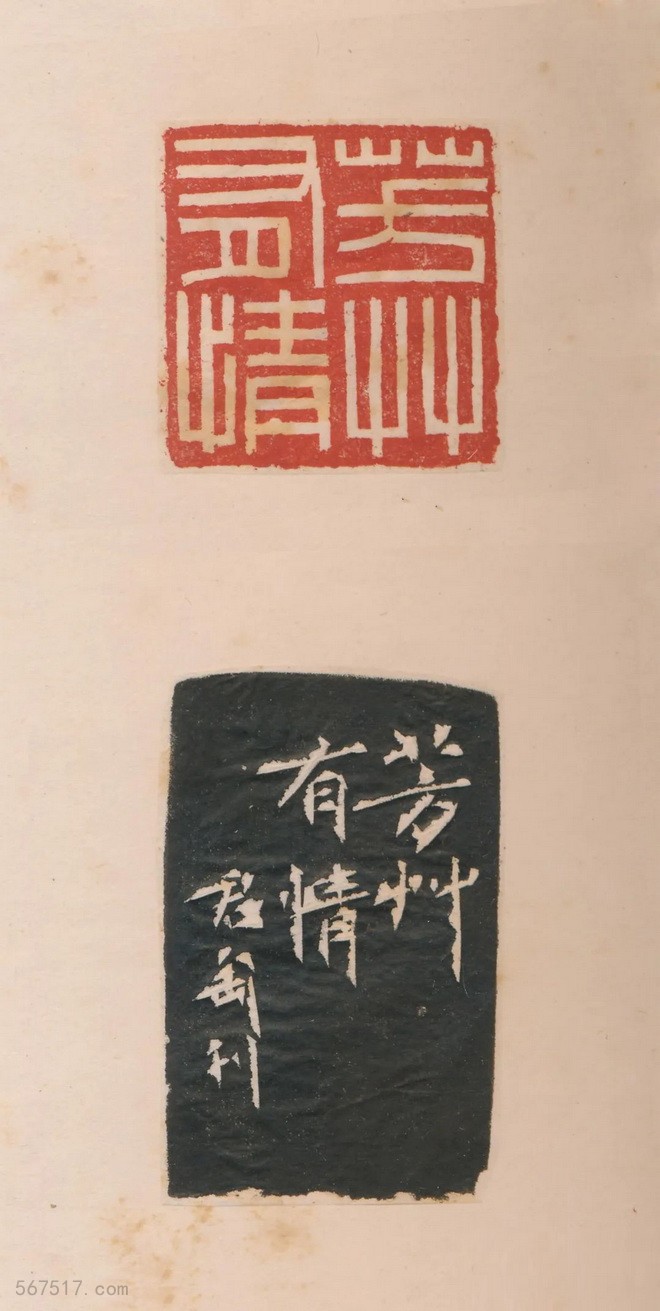 芳艸
有情
芳艸
有情
刊
567517.com